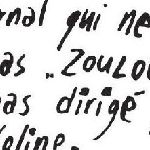 rnal qui ne
as „ZOULOU
as dirigé